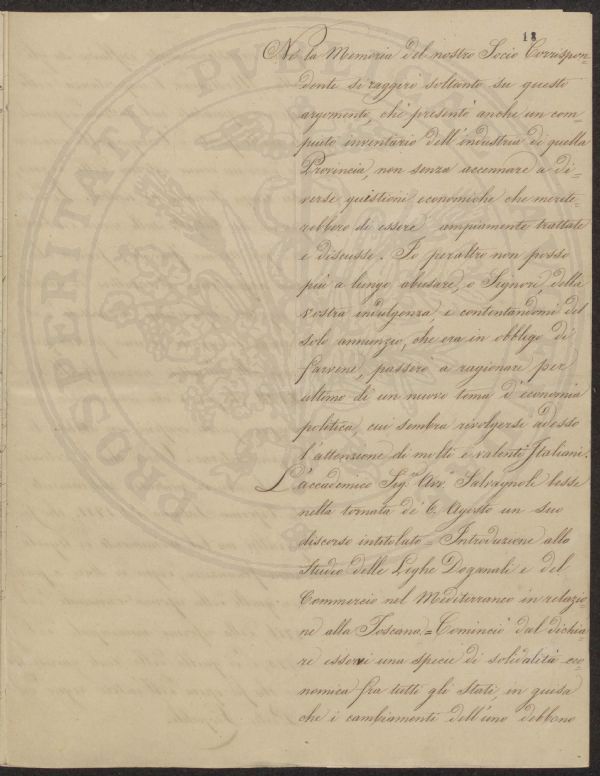 18
Nè la Memoria del nostro Socio Corrispon-
dente si raggirò soltanto su questo
argomento, chè presentò anche un com-
piuto inventario dell'industria di quella
Provincia, non senza accennare a di-
verse quistioni economiche che merite-
rebbero di essere ampiamente trattate
e discusse. Io peraltro non posso
più a lungo abusare, o Signori, della
vostra indulgenza, e contentandomi del
solo annunzio, che era in obbligo di
farvene, passerò a ragionare per
ultimo di un nuovo tema d'economia
politica, cui sembra rivolgersi adesso
l'attenzione di molti e valenti Italiani.
L'accademico Sig.r Avv.o Salvagnoli lesse
nella tornata de' 6 Agosto un suo
discorso intitolato = Introduzione allo
Studio delle Leghe Doganali e del
Commercio nel Mediterraneo in relazio-
ne alla Toscana. = Cominciò dal dichia-
re esservi una specie di solidalità eco-
nomica fra tutti gli Stati, in guisa
che i cambiamenti dell'uno debbono
PROSPERITATI PUBLICAE